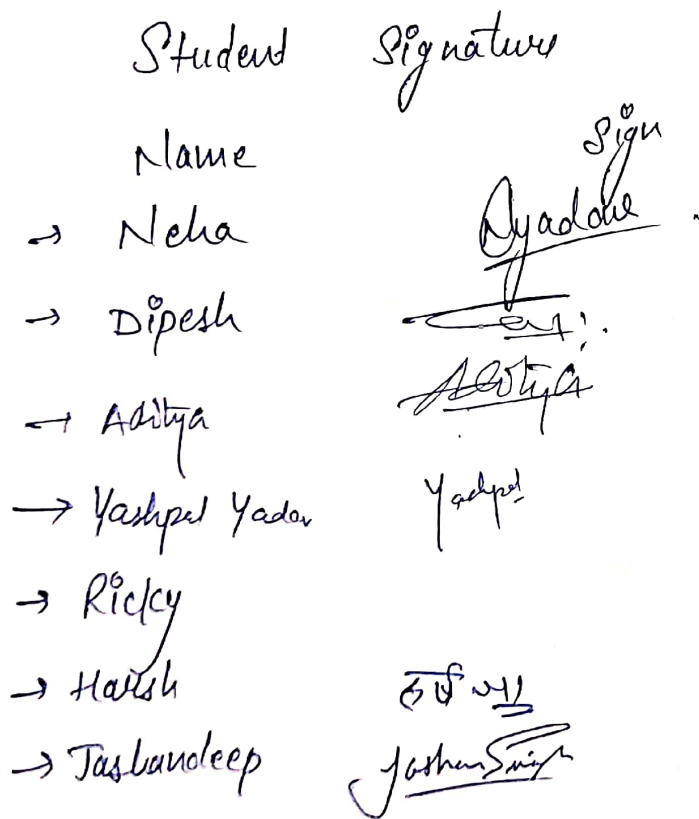 Student Signature
Name Sign
→ Neha
→ Dipesh
→ Aditya Aditya
→ Yashpal Yadav Yashpal
→ Ricky
→ Harsh
→ Jashandeep Jashan Singh